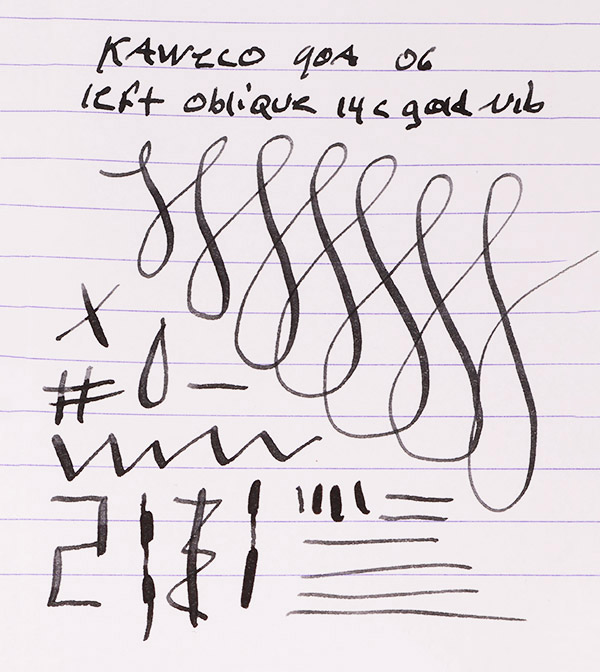 KAWECO 90A 06
left oblique 14c gold nib